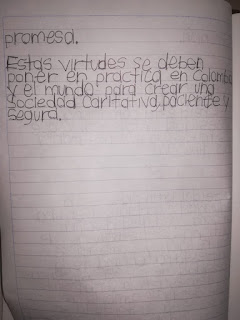 promesa.
Estas virtudes se deben
poner en práctica en Colombia
y el mundo para crear una
sociedad caritativa, paciente y
segura.